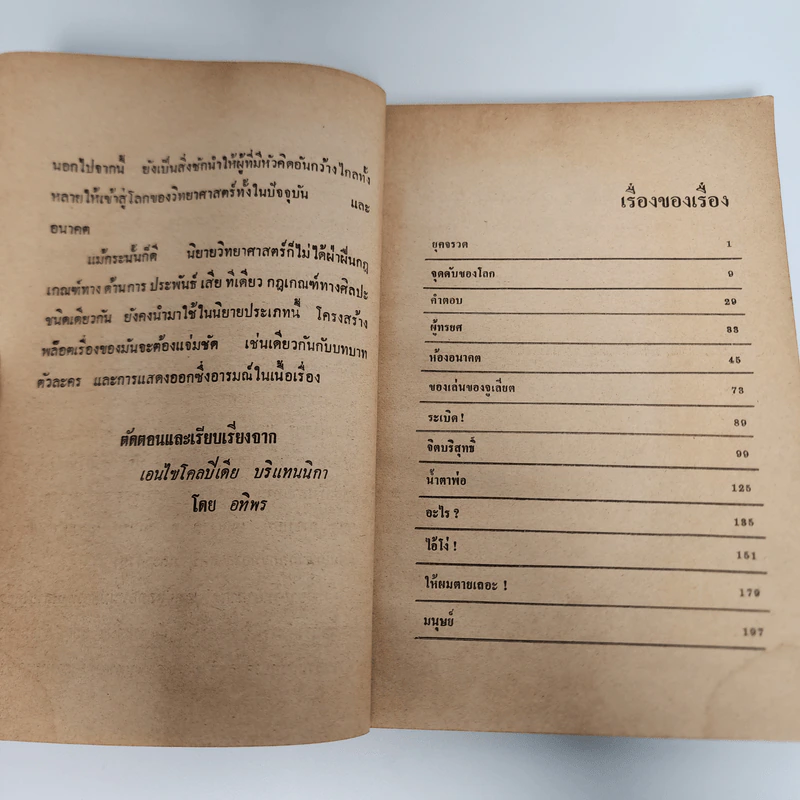 นอกไปจากนี้ ยังเป็นสิ่งชักนำให้ผู้ที่มีหัวคิดอันกว้างไกลทั้ง
หลายให้เข้าสู่โลกของวิทยาศาสตร์ทั้งในปัจจุบัน และ
อนาคต
แม้กระนั้นก็ดี นิยายวิทยาศาสตร์ก็ไม่ได้ฝ่าฝืนกฎ
เกณฑ์ทางด้านการประพันธ์เสียทีเดียว กฎเกณฑ์ทางศิลปะ
ชนิดเดียวกัน ยังคงนำมาใช้ในนิยายประเภทนี้ โครงสร้าง
พล็อตเรื่องของมันจะต้องแจ่มชัด เช่นเดียวกันกับบทบาท
ตัวละคร และการแสดงออกซึ่งอารมณ์ในเนื้อเรื่อง
ตัดตอนและเรียบเรียงจาก
เอนไซโคลปีเดีย บริแทนนิกา
โดย อทิพร
เรื่องของเรื่อง
ยุคจรวด 1
จุดดับของโลก 9
คำตอบ 29
ผู้ทรยศ 33
ห้องอนาคต 45
ของเล่นของจูเลียต 73
ระเบิด! 89
จิตบริสุทธิ์ 99
น้ำตาพ่อ 125
อะไร? 135
ไอ้โง่! 151
ให้ผมตายเถอะ! 179
มนุษย์ 197